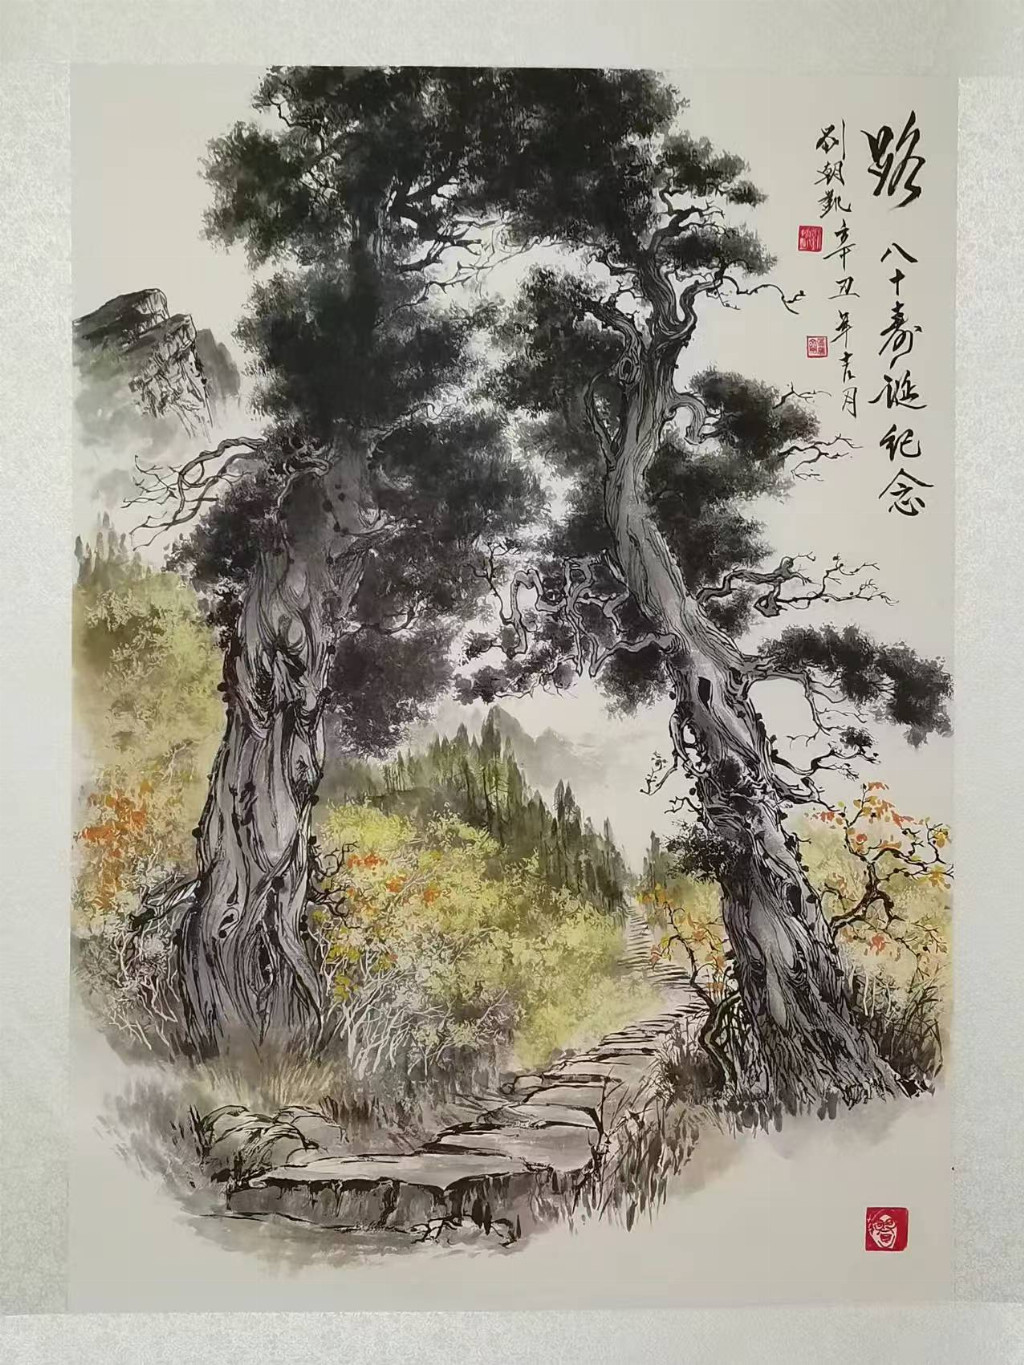 路 八十寿诞纪念
刘朝凯 辛丑年吉月